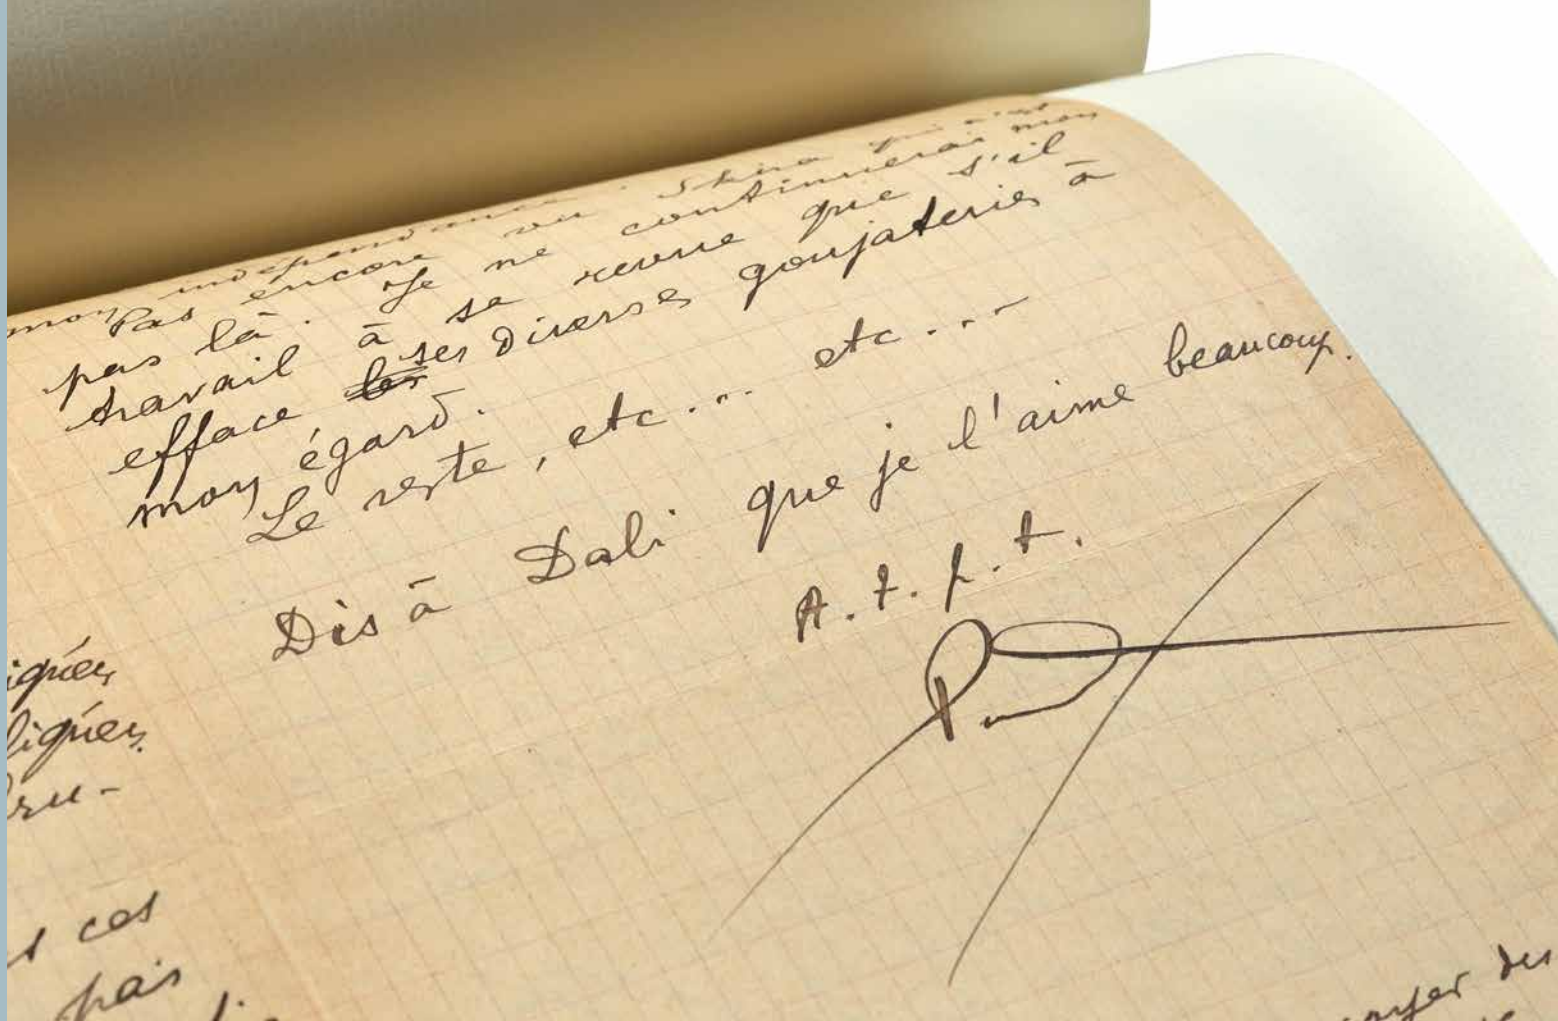 mon indépendance. Skira qui n'est
Pas encore vu
pas là. Je ne continuerai mon
travail à sa revue que s'il
efface les ses diverses goujateries à
mon égard.
Le reste, etc... etc....
Dis à Dali que je l'aime beaucoup.
A. t. p. t.
iguées
liguées
s ces
pais
des